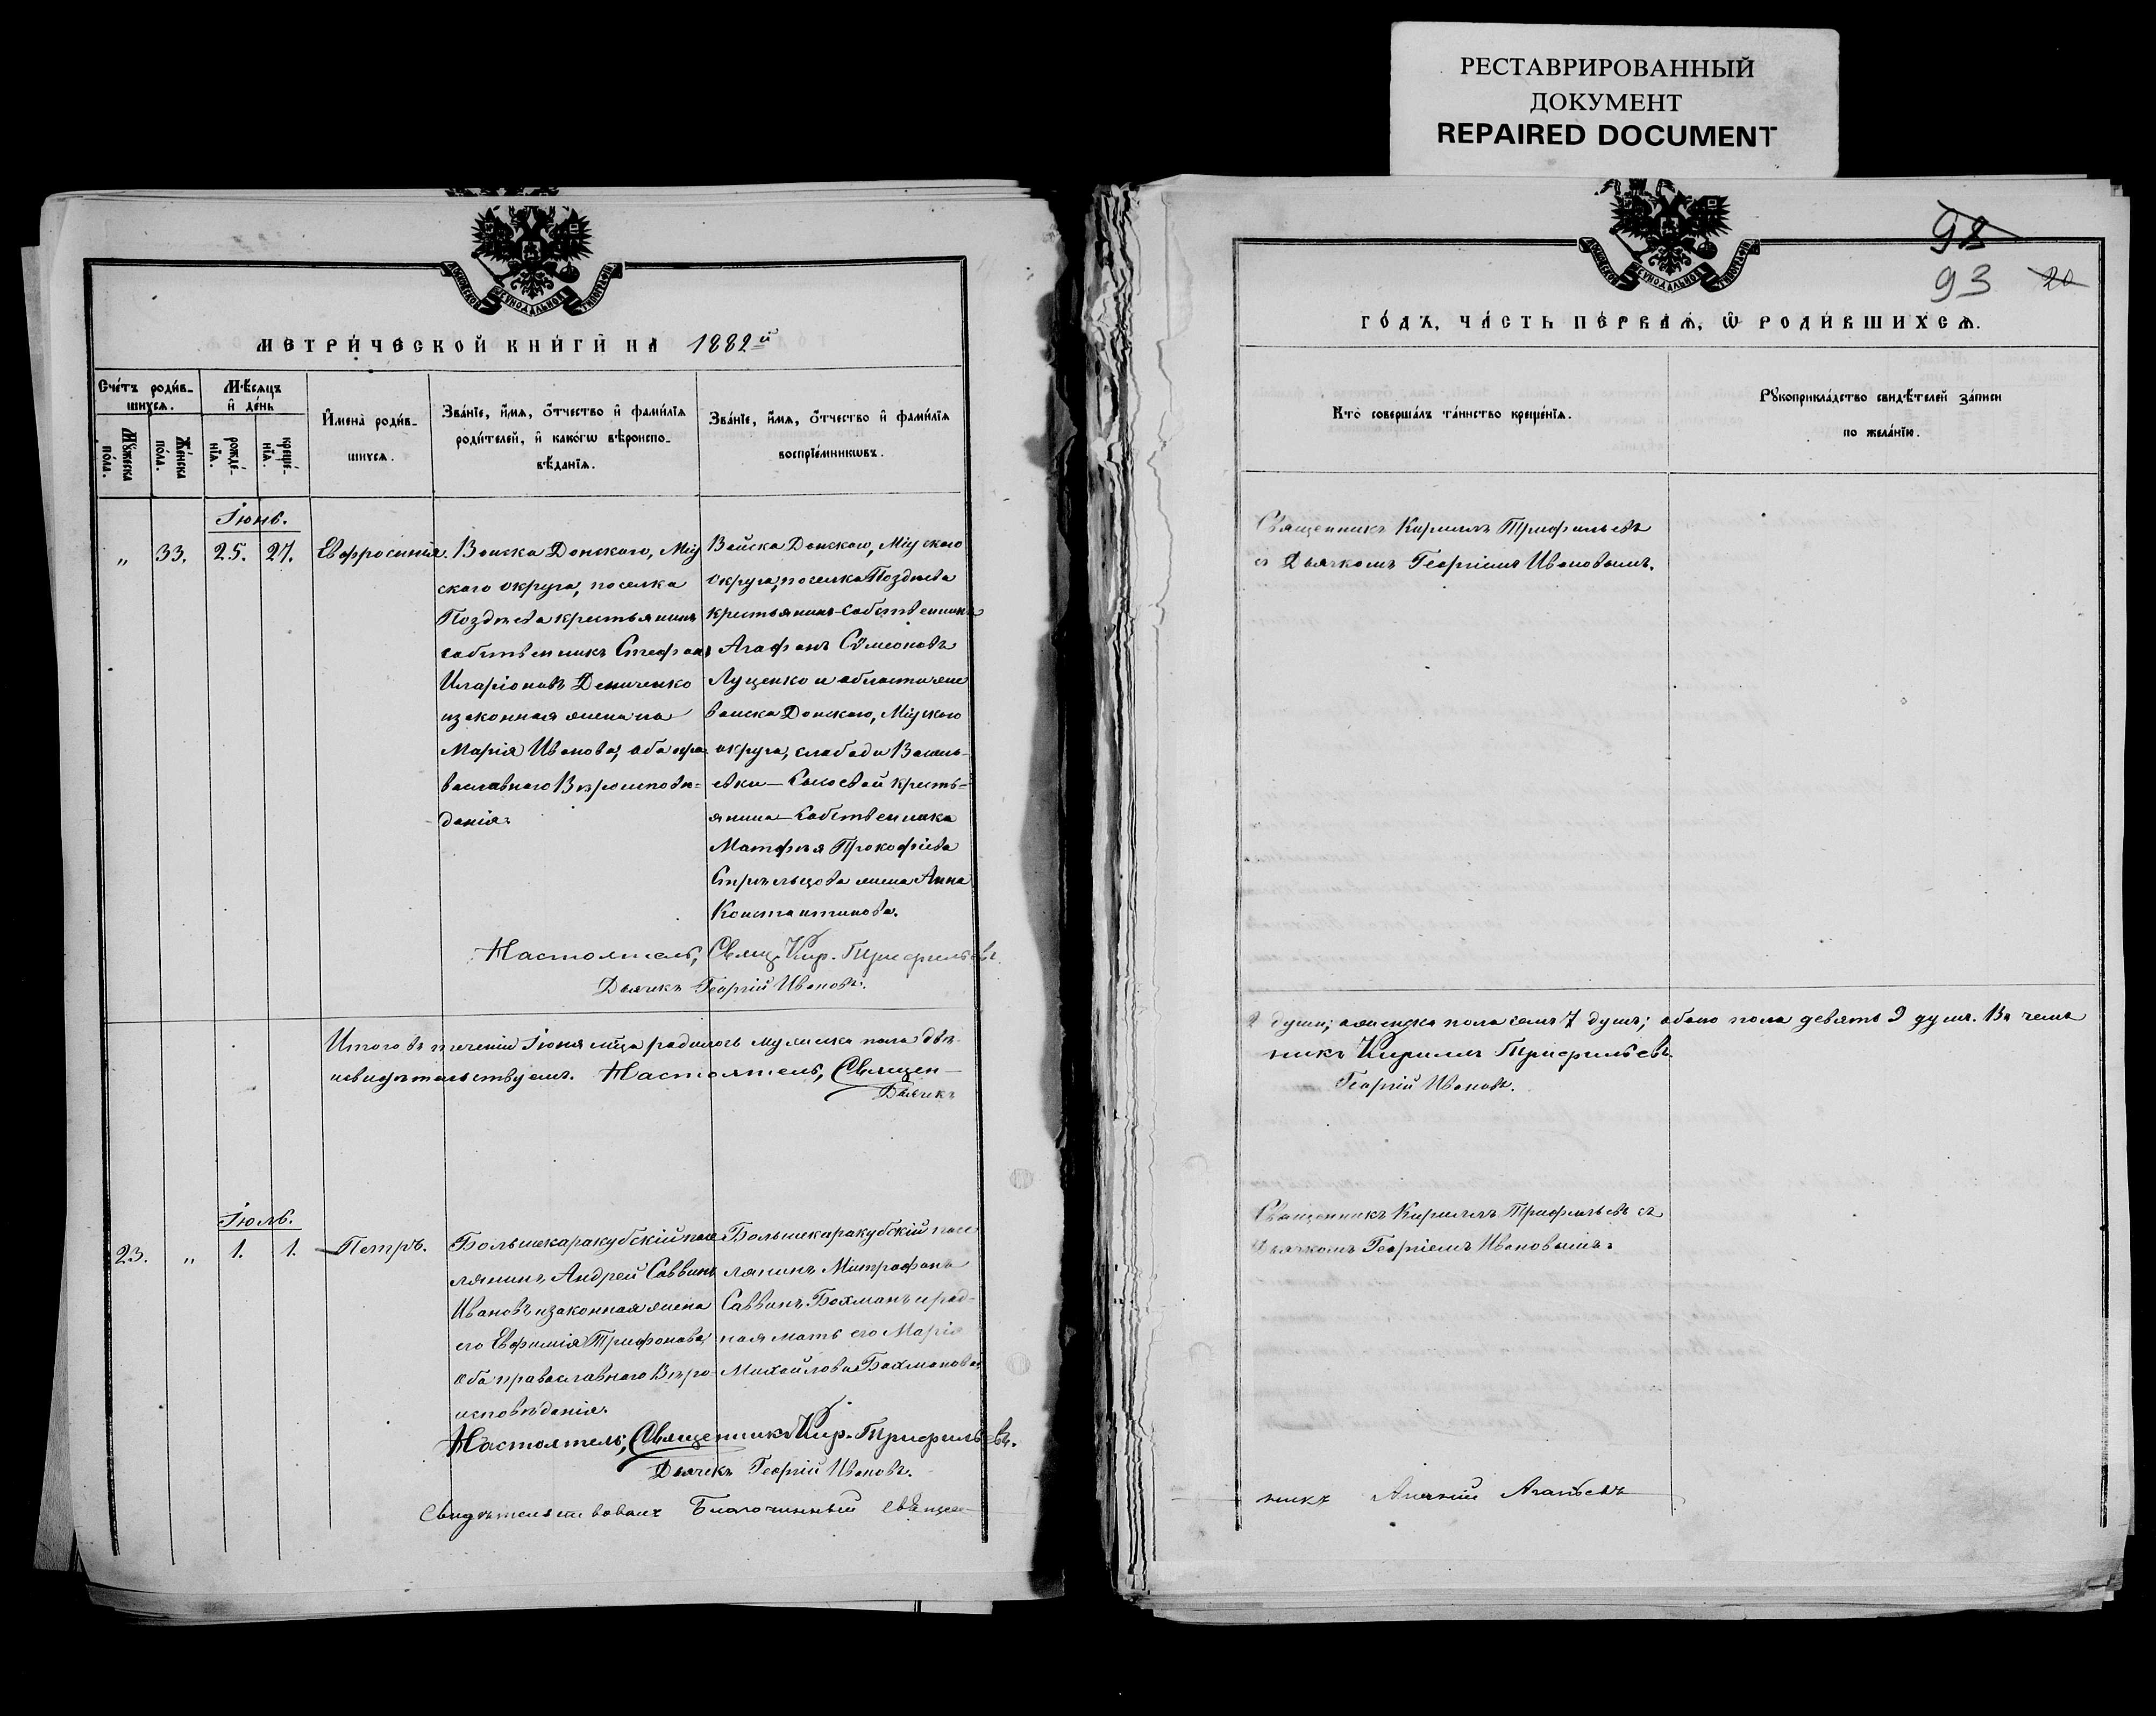 РЕСТАВРИРОВАННЫЙ
ДОКУМЕНТ
REPAIRED DOCUMENT
МЕТРИ́ЧЕСКОЙ КНИ́ГИ НА 1882й
Сче́тъ роди́в-
шихсѧ.
Мѣ́сѧцъ
и҆ де́нь
Мꙋ́жеска
по́ла.
Же́нска
по́ла.
рожде́-
нїѧ.
креще́-
нїѧ.
И҆мена̀ роди́в-
шихсѧ.
Зва́нїе, и҆́мѧ, ѻ҆́тчество и҆ фами́лїѧ
роди́телей, и҆ како́гѡ вѣроиспо-
вѣ́данїѧ.
Зва́нїе, и҆́мѧ, ѻ҆́тчество и҆ фами́лїѧ
воспрїе́мникѡвъ.
Іюнь.
„ 33. 25. 27. Евфросинія.
Войска Донскаго, Міу
скаго округа, поселка
Позднѣева крестьянинъ
собственникъ Стефанъ
Иларіоновъ Демченко
и законная жена его
Марія Иванова, оба пра
вославнаго Вѣроисповѣ-
данія.
Войска Донскаго, Міускаго
округа, поселка Позднѣева
крестьянинъ-собственникъ
Агафонъ Сѵмеоновъ
Луценко и области
войска Донскаго, Міускаго
округа, слободы Василь-
евки — кресть-
янина — собственника
Матфѣя Прокофіева
Стрѣльцова жена Анна
Константинова.
Настоятель, Свящ. Кир. Трифильевъ.
Дьячекъ Георгій Ивановъ.
Итого въ теченіи Іюня мѣсяца родилось мужеска пола двѣ-
и свидѣтельствуемъ. Настоятель, Священ-
Дьячекъ
Іюль.
23. „ 1. 1. Петръ.
Большекаракубскій посе
лянинъ, Андрей Саввинъ
Ивановъ и законная жена
его Евфимія Трифонова,
оба православнаго Вѣро-
исповѣданія.
Большекаракубскій посе
лянинъ Митрофанъ
Саввинъ Бахманъ и род-
ная мать его Марія
Михайлова Бахманова.
Настоятель, Священникъ Кир. Трифильевъ.
Дьячекъ Георгій Ивановъ.
Свидѣтельствовалъ Благочинный священ-
98
93 20
ГО́ДЪ, ЧА́СТЬ ПЕ́РВАѦ, Ѡ҆ РОДИ́ВШИХСѦ.
Кто̀ соверша́лъ та́инство креще́нїѧ.
Рꙋкоприкла́дство свидѣ́телей за́писи
по жела́нїю.
Священникъ Кириллъ Трифильевъ
съ Дьячкомъ Георгіемъ Ивановымъ.
2 души; женска пола семь 7 душъ; обоего пола девять 9 душъ. Въ чемъ
никъ Кириллъ Трифильевъ.
Георгій Ивановъ.
Священникъ Кириллъ Трифильевъ съ
Дьячкомъ Георгіемъ Ивановымъ.
никъ Ананій Агапьевъ